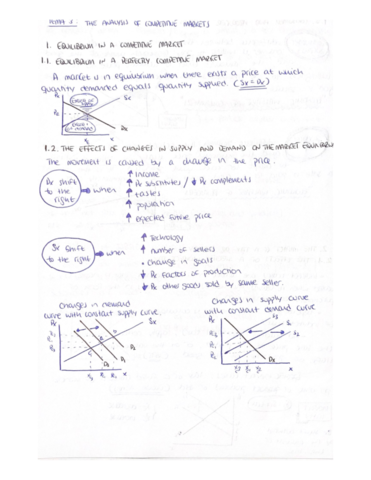 THE ANALYSIS OF COMPETITIVE MARKETS
1. EQUILIBRIUM IN A COMPETITIVE MARKET
1.1. EQUILIBRIUM IN A PERFECTLY COMPETITIVE MARKET
A market is in equilibrium when there exists a price at which
quantity demanded equals quantity supplied (Sx = Dx)
Px
Sx
Dx
x
1.2. THE EFFECTS OF CHANGES IN SUPPLY AND DEMAND ON THE MARKET EQUILIBRIUM
The movement is caused by a change in the price.
Dx shift
to the
right
when
↑ income
↑ Px substitutes / ↓ Px complements
↑ tastes
↑ population
↑ expected future price
Sx shift
to the right
when
↑ Technology
↑ number of sellers
• change in goals
↓ Px factors of production
↓ Px other goods sold by same seller.
Changes in demand
curve with constant supply curve.
Px
Sx
x
Changes in supply curve
with constant demand curve
Px
Dx
x